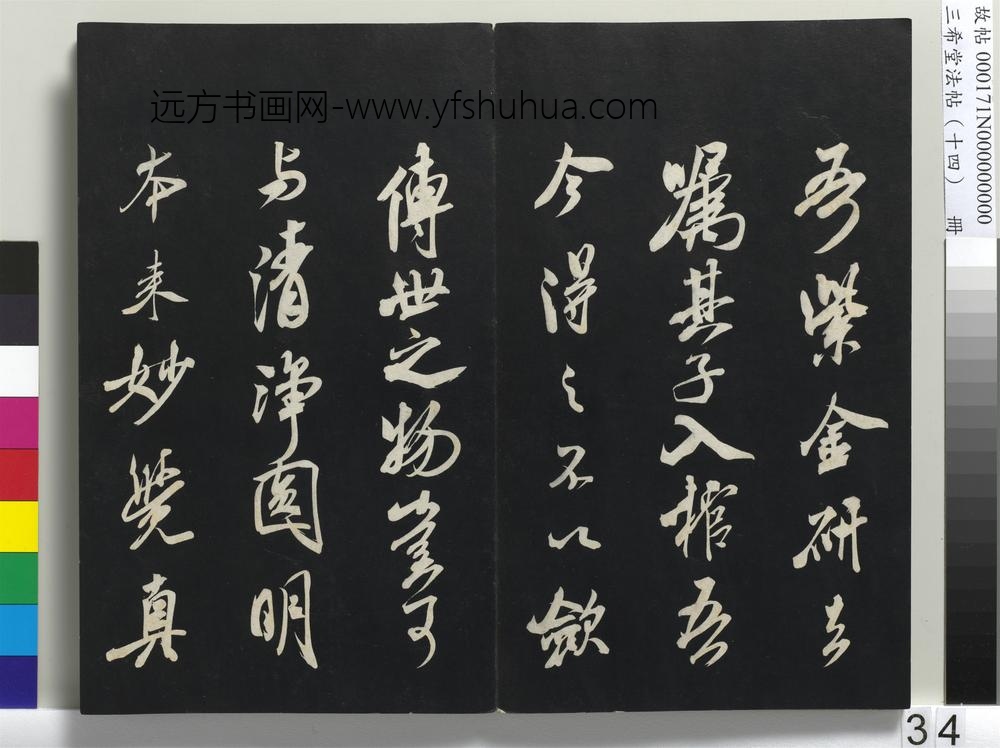 吾紫金研去
嘱其子入棺吾
今得之不以斂
傳世之物豈可
与清淨圓明
本来妙覺真
远方书画网-www.yfshuhua.com
故帖 000171N000000000
三希堂法帖(十四) 册
34